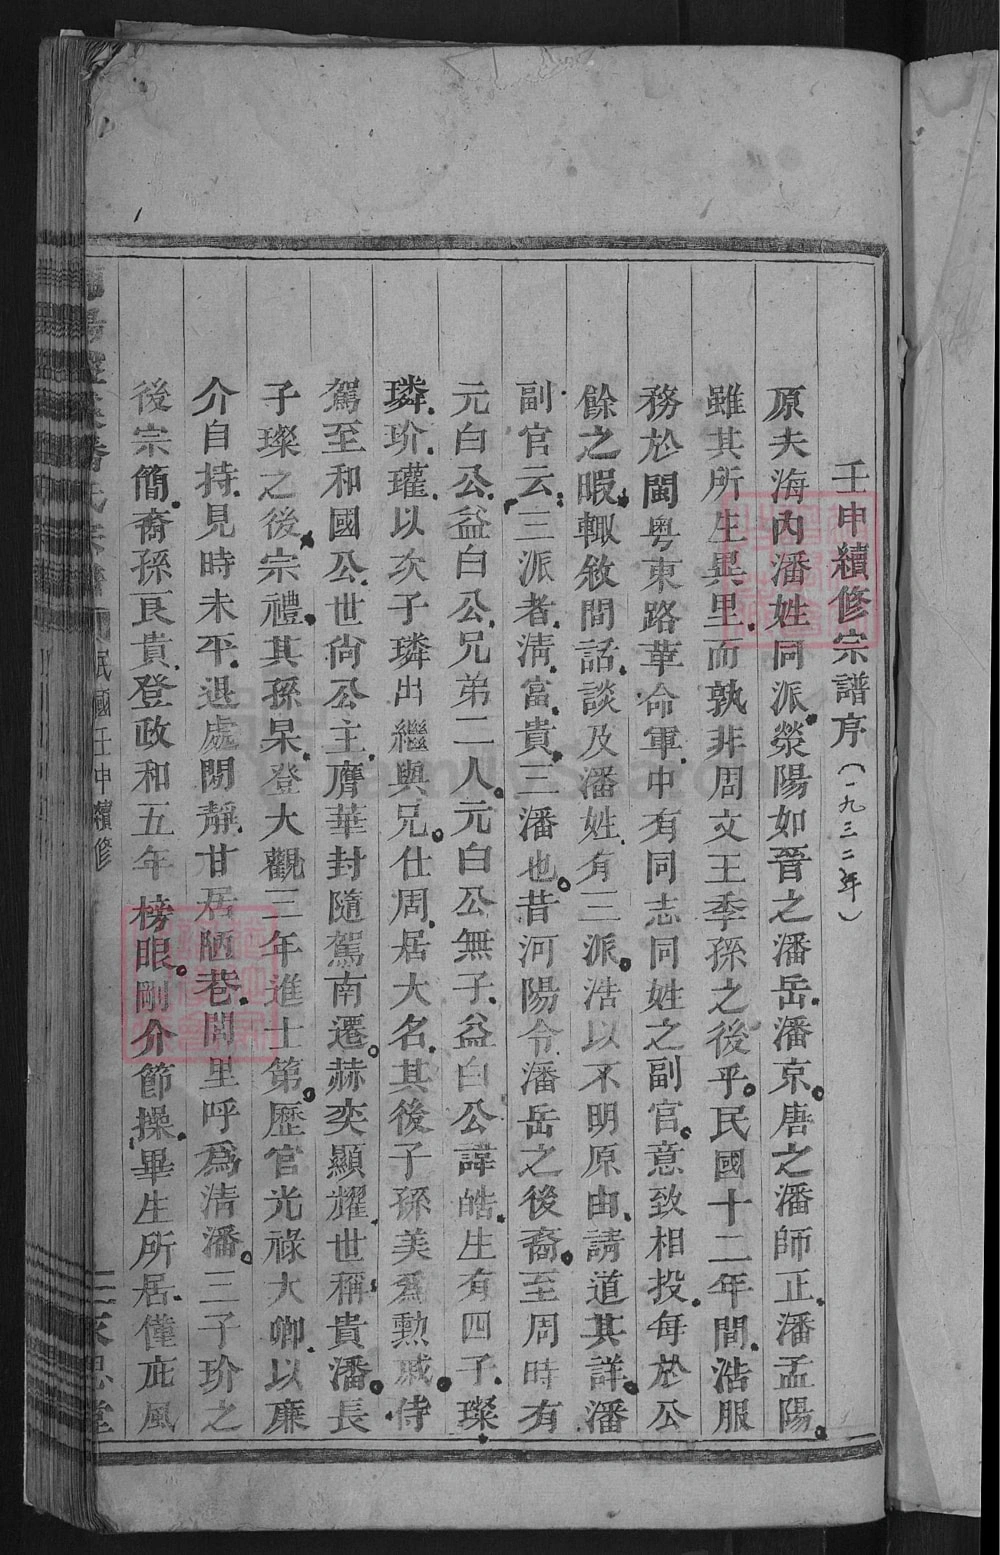 壬申續修宗譜序(一九三二年)
原夫海內潘姓同派滎陽如晉之潘岳潘京唐之潘師正潘孟陽
雖其所生異里而孰非周文王季孫之後乎民國十二年間浩服
務於閩粵東路革命軍中有同志同姓之副官意致相投每於公
餘之暇輒敘間話談及潘姓有三派浩以不明原由請道其詳潘
副官云三派者清富貴三潘也昔河陽令潘岳之後裔至周時有
元白公益白公兄弟二人元白公無子益白公諱皓生有四子璨
璘玠瓘以次子璘出繼與兄仕周居大名其後子孫美為勳戚侍
駕至和國公世尙公主膺華封隨駕南遷赫奕顯耀世稱貴潘長
子璨之後宗禮其孫杲登大觀三年進士第歷官光祿大卿以廉
介自持見時未平退處閒靜甘居陋巷閭里呼爲清潘三子玠之
後宗簡裔孫良貴登政和五年榜眼剛介節操畢生所居僅庇風
民國壬申續修